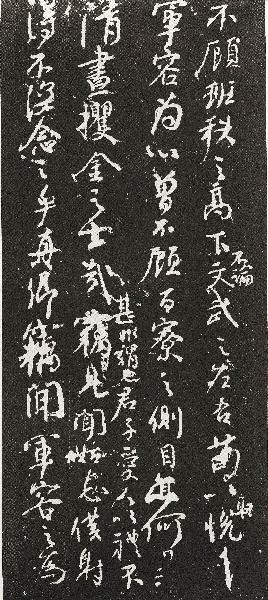 不顧班秩之高下不論文武之左右苟以取悅
軍容為心曾不顧百寮之側目亦何異
清晝攫金之士哉甚非謂也君子愛人以禮不聞姑息僕射
得不深念之乎真卿竊聞軍容之為